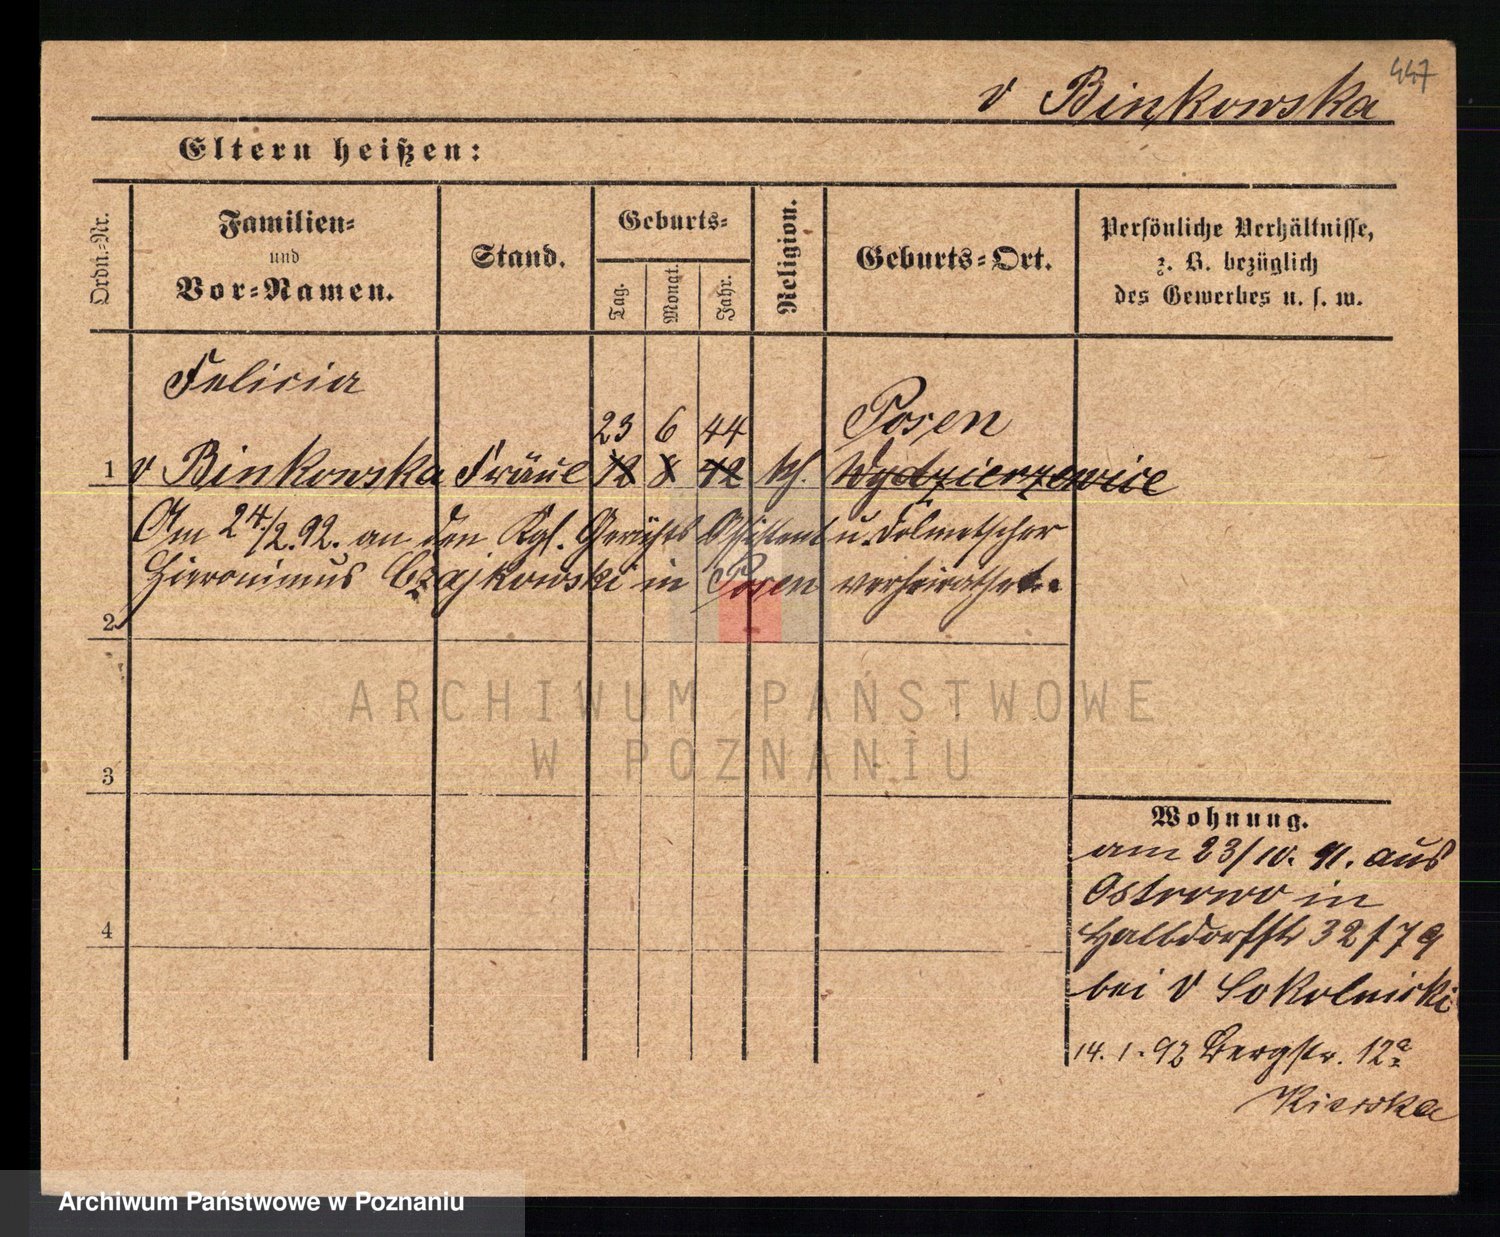 447
v Binkowska
Eltern heißen:
Ordn.-Nr.
Familien-
und
Vor-Namen.
Stand.
Geburts-
Tag.
Monat.
Jahr.
Religion.
Geburts-Ort.
Persönliche Verhältnisse,
z. B. bezüglich
des Gewerbes u. s. w.
Felicia
23 6 44 Posen
1 v Binkowska Fräul 12 8 42 kth. Wydzierzewice
Am 24./2.92. an den Kgl. Gerichts Assistent u. Dolmetscher
Hieronimus Czajkowski in Posen verheirathet.
2
ARCHIWUM PAŃSTWOWE
W POZNANIU
3
Wohnung.
am 23/10. 91. aus
Ostrowo in
Halbdorfstr 32/79
bei v Sokolnicki
4
14. 1. 92 Bergstr. 12a
Archiwum Państwowe w Poznaniu